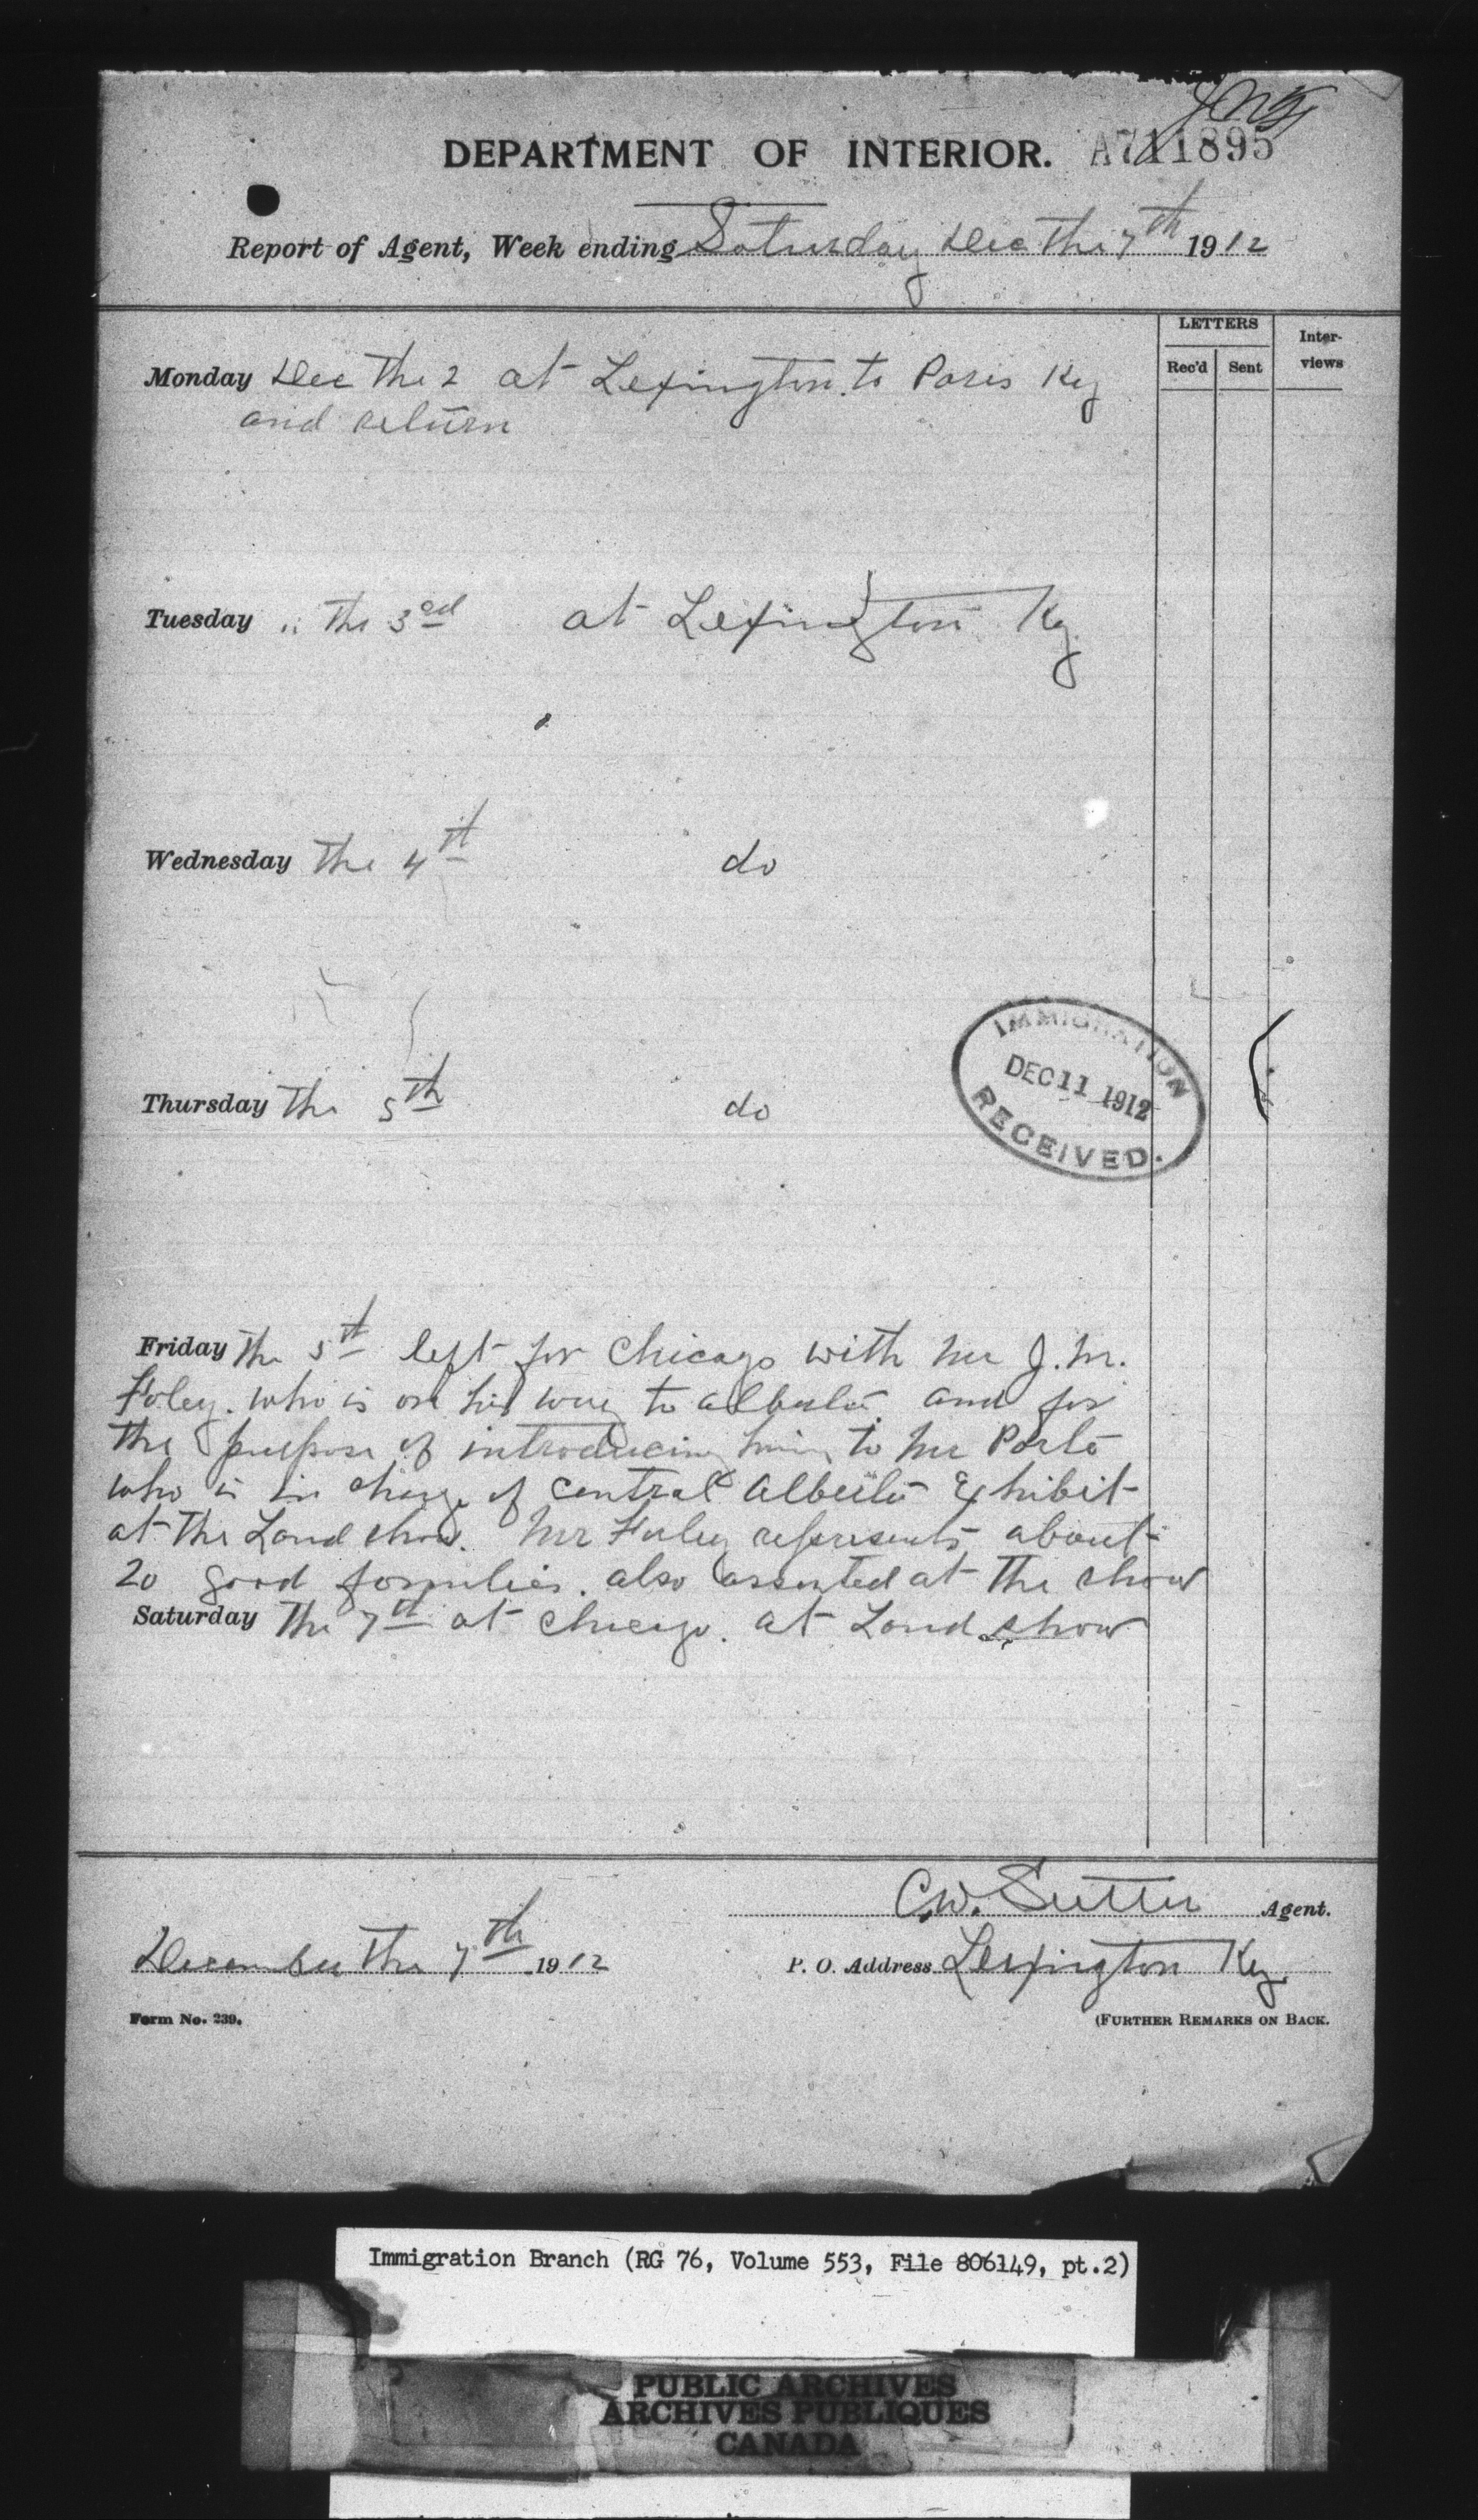 DEPARTMENT OF INTERIOR. A711895
Report of Agent, Week ending Saturday Dec the 7th 1912
LETTERS
Rec'd Sent
Inter-
views
Monday Dec the 2 at Lexington to Paris Ky
and return
Tuesday " the 3rd at Lexington Ky
Wednesday the 4th do
Thursday the 5th do
IMMIGRATION
DEC 11 1912
RECEIVED.
Friday the 5th left for Chicago with Mr J. M.
Foley. who is on his way to Alberta and for
the purpose of introducing him to Mr
who is in charge of Central Alberta Exhibit
at the Land show. Mr Foley represents about
20 good families. also assisted at the show
Saturday the 7th at Chicago. at Land show
C.W. Sutter Agent.
December the 7th 1912
P. O. Address Lexington Ky.
Form No. 239.
(FURTHER REMARKS ON BACK.
Immigration Branch (RG 76, Volume 553, File 806149, pt.2)
PUBLIC ARCHIVES
ARCHIVES PUBLIQUES
CANADA